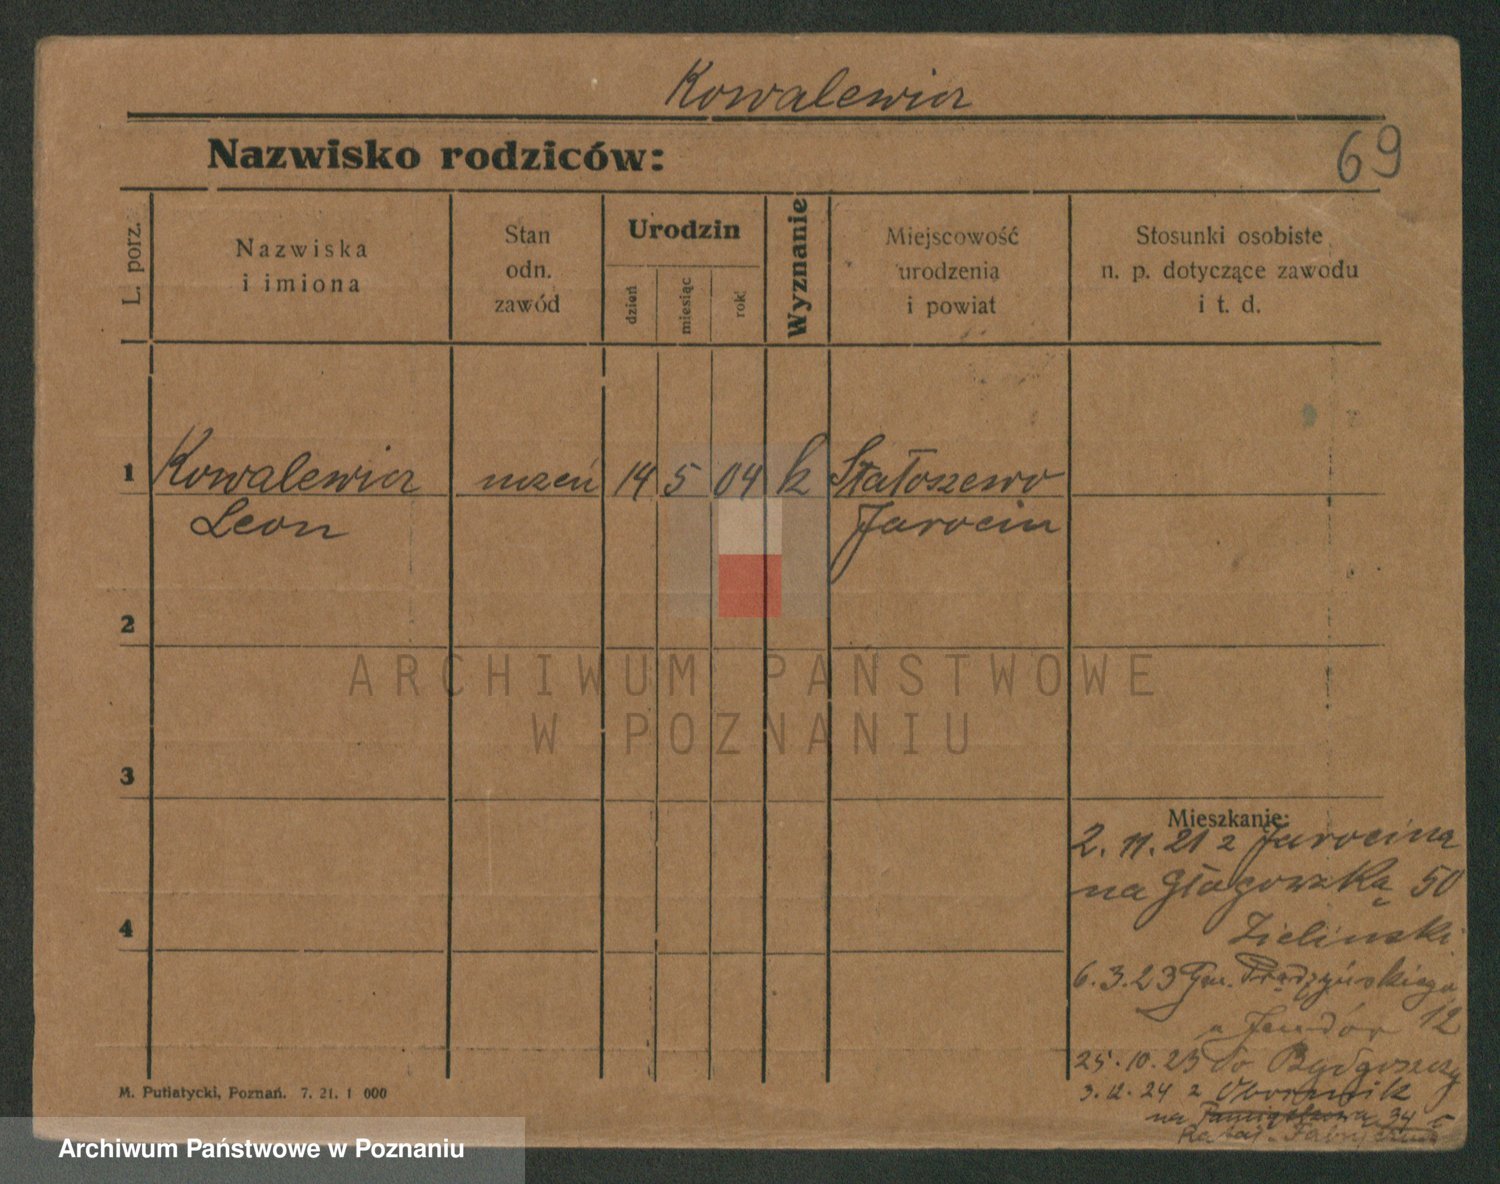 Kowalewicz
69
Nazwisko rodziców:
L. porz.
Nazwiska
i imiona
Stan
odn.
zawód
Urodzin
dzień
miesiąc
rok
Wyznanie
Miejscowość
urodzenia
i powiat
Stosunki osobiste
n. p. dotyczące zawodu
i t. d.
1 Kowalewicz uczeń 14 5 04 k
Leon Jarocin
2
3
4
Mieszkanie:
2.11.21 z Jarocina
na Głogowską 50
Zieliński
6.3.23 Gen. Prądzyńskiego
12
25.10.23 do Bydgoszczy
3.12.24 z Obornik
na 34
M. Putiatycki, Poznań. 7. 21. 1 000
ARCHIWUM PAŃSTWOWE
W POZNANIU
Archiwum Państwowe w Poznaniu